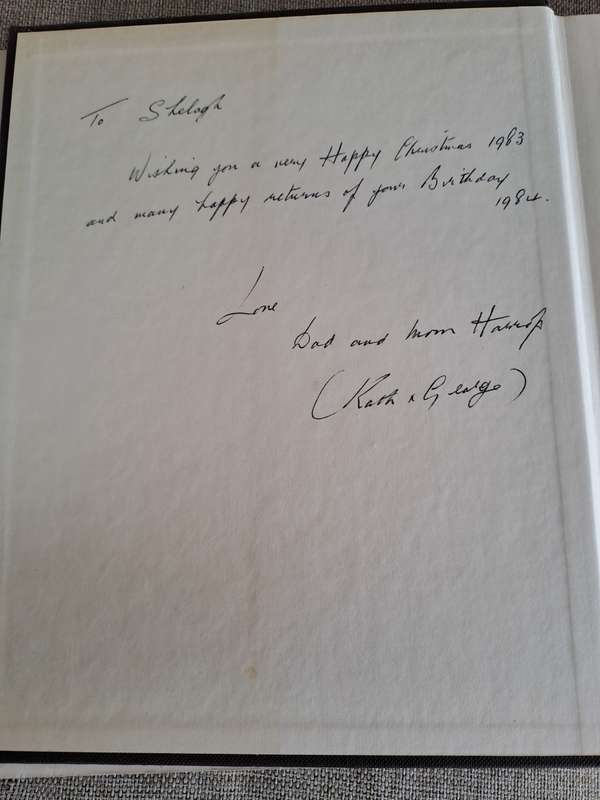 To Shelagh
Wishing you a very Happy Christmas 1983
and many happy returns of your Birthday
1984.
Love
Dad and Mom Harrop
(Kath & George)